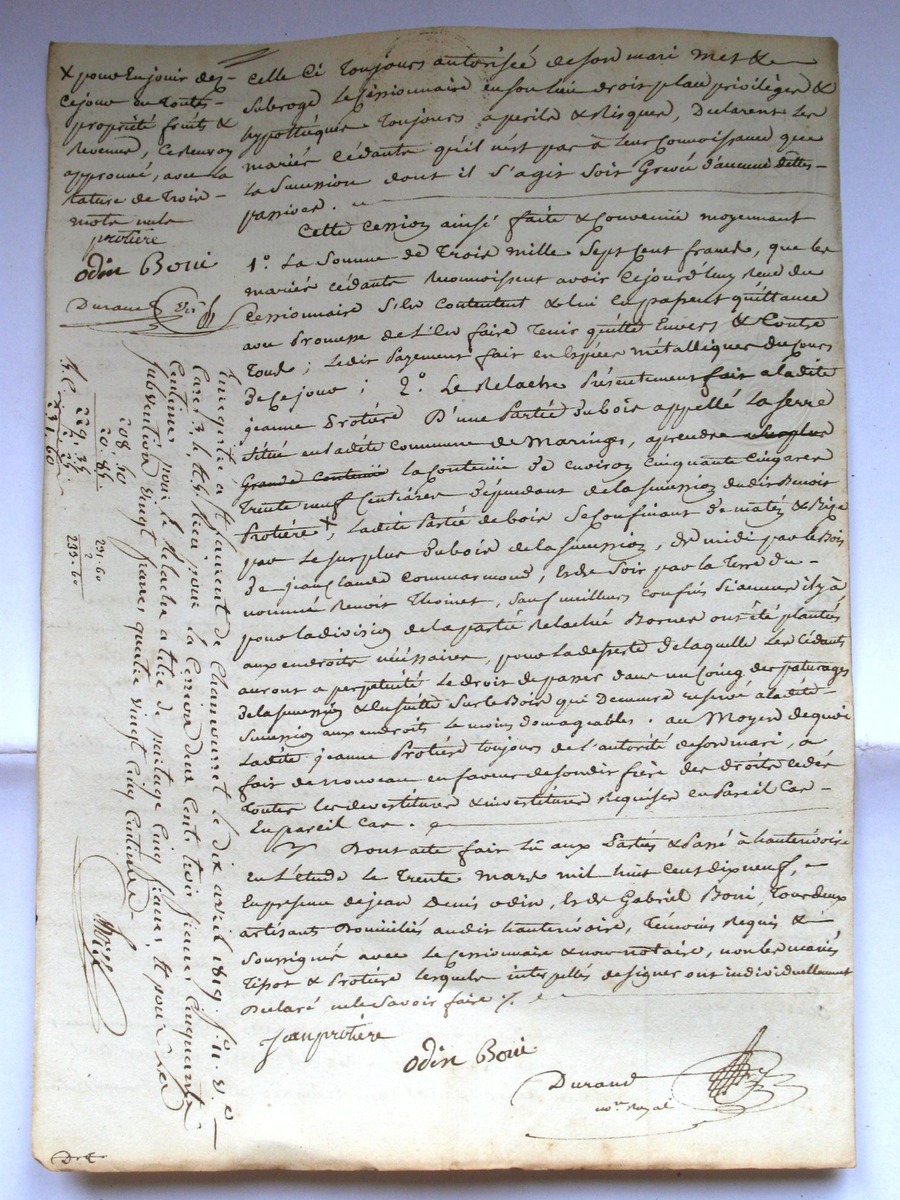 x pour En jouir des
ce jour en Toute
propriété fruits &
Revenus, Ce Renvoy
approuvé, avec la
rature de Trois
mots nuls
protière
odin Boni
Durand
Celle Ci Toujours autorisée de son mari Met &
Subroge Le Cessionnaire en son lieu droit place privilèges &
hypothèques Toujours à perils & Risques, Déclarent Les
mariés Cédants qu'il n'est pas à Leur Connoissance que
La Succession dont il s'agit Soit Grevée d'aucune dettes
passives.
Cette Cession ainsi faite & Convenue moyennant
1° La Somme de Trois mille Sept Cent francs, que les
mariés cédants Reconnoissent avoir Cejourd'huy Reçu du
Cessionnaire S'en Contentent & lui En passent quittance
avec Promesse de L'en faire Tenir quitte Envers & Contre
Tous; Ledit Payement fait en Espèces métalliques du Cours
De ce jour; 2° Le Relache Présentement fait a ladite
jeanne Protière D'une Partie du bois appellé La Serre
Situé en ladite Commune de Maringes, a prendre
Grande Contenue la Contenue De environ Cinquante Cinq ares
Trente neuf Centiares Dépendant de la Succession dudit Benoit
Protière x, Ladite Partie de bois Se Confinant De matin & Bize
par Le Surplus du bois de la Succession, De midi par le Bois
De jean Claude Commarmond, Et de Soir par la Terre du
nommé Benoit Thoinet, Sauf meilleurs Confins Si aucuns il y a
pour la division de la partie Relaché Bornes ont été plantés
aux endroits nécessaires, pour la desserte de laquelle Les Cédants
auront a perpetuité Le droit de passer dans un Coing des paturages
de la Succession & Ensuite Sur le Bois qui Demeure reservé a ladite
Succession aux endroits Le moins domageables. au Moyen de quoi
Ladite jeanne Protière toujours de L'autorité de son mari, a
fait de nouveau en faveur de son dit frère des droits cédés
Toutes les devestitures & investitures Requises en Pareil Cas
En pareil Cas.
Dont acte fait Lû aux Parties & Passé à hauterivoire
En L'étude Le Trente Mars mil huit Cent dix neuf,
En présence de jean Denis odin, Et de Gabriel Boni, Tous deux
artisants Domiciliés au dit hauterivoire, Témoins Requis &
Soussignés avec Le Cessionnaire & nous notaire, non les mariés
Tissot & Protière lesquels interpellés de signer ont individuellement
Déclaré ne le Savoir faire
Jean protière
odin Boni
Durand
nore Royal
Enregistré a St Laurent de Chamousset le dix avril 1819
Reçu pour la Cession deux Cents trois francs Cinquante
Centimes, pour le Relache a titre de partage Cinq francs, & pour la
Subvention vingt francs quatre vingt Cinq Centimes
208.50
20.85
229.35
2.25
231.60
231.60
2
233.60